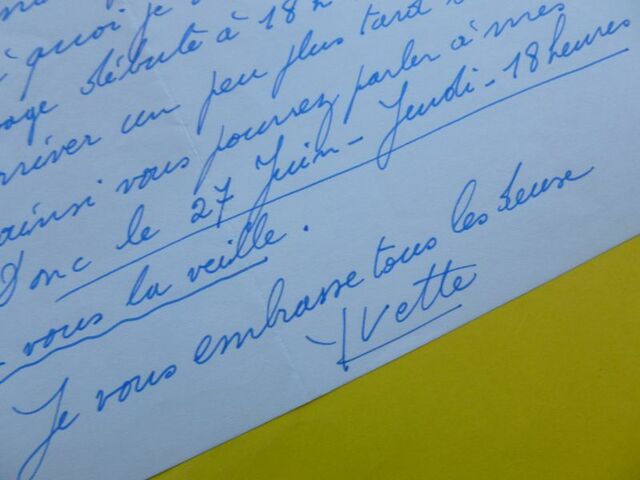 quoi je
débute à 18h
arriver un peu plus tard
ainsi vous pourrez parler à mes
Donc le 27 Juin - Jeudi - 18 heures
vous la veille.
Je vous embrasse tous les deuse
Yvette